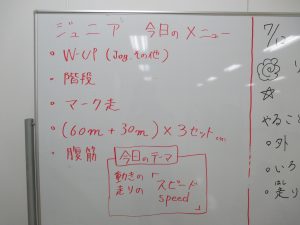 ジュニア 今日のメニュー
・W-UP (Jog、その他)
・階段
・マーク走
・(60m+30m)×3セット
・腹筋
今日のテーマ
動きの
走りの
「スピード
speed」
7/1
やること
・外
・いろ
・走り